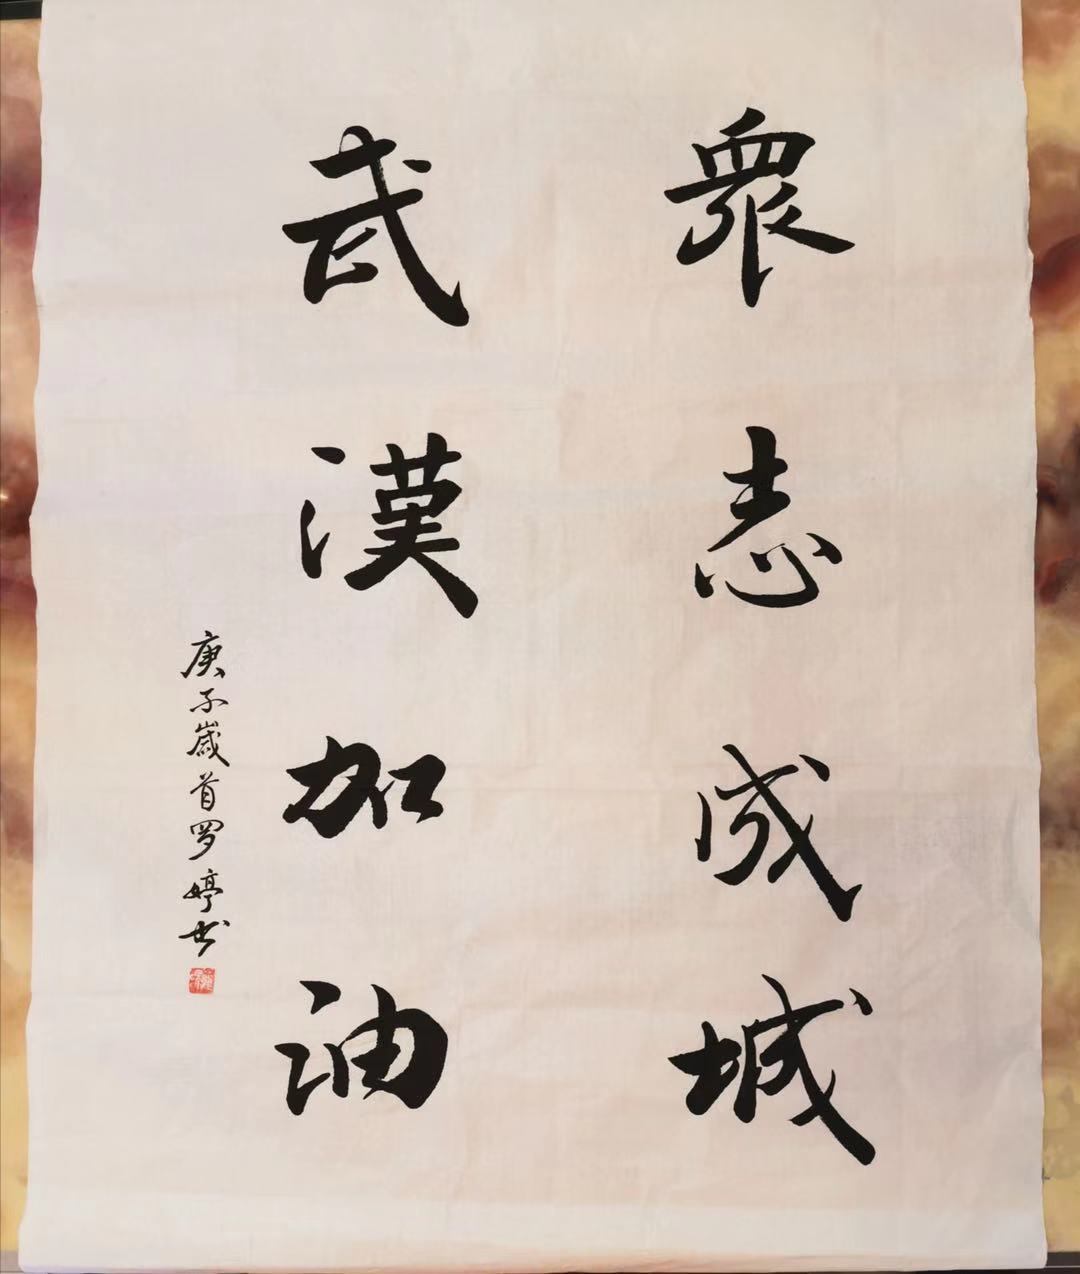 眾志成城
武漢加油
庚子歲首罗婷书